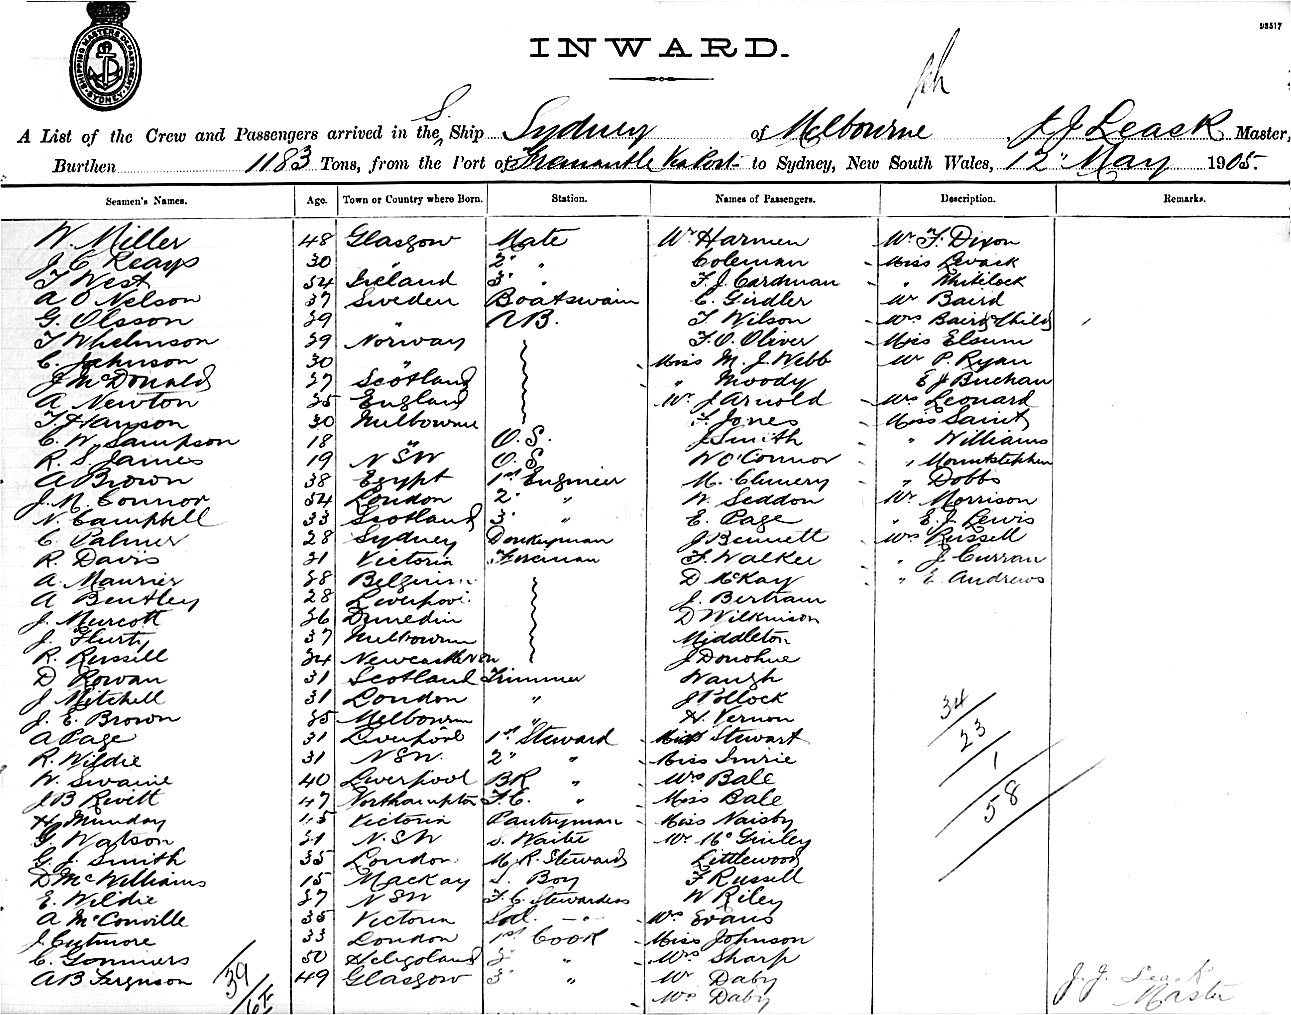 93517
SHIPPING MASTERS DEPARTMENT SYDNEY
INWARD.
A List of the Crew and Passengers arrived in the S. Ship Sydney of Melbourne, J J Leask Master,
Burthen 1183 Tons, from the Port of Fremantle Via Port to Sydney, New South Wales, 12 May 1905.
Seamen's Names. Age. Town or Country where Born. Station. Names of Passengers. Description. Remarks.
W. Miller 48 Glasgow Mate Mr Harmen Mr F. Dixon
J. C. Keays 30 " 2 " Coleman Miss Levack
T West 54 Ireland 3 " F. J. Cardman " Whitelock
A O Nelson 37 Sweden Boatswain C. Girdler Mr Baird
G. Olsson 39 " A B. T Wilson Mrs Baird & Child
T Whelmson 39 Norway F. O. Oliver Miss Elsum
C. Johnson 30 " Miss M. J. Webb Mr P. Ryan
J McDonald 27 Scotland " Moody E J Buchan
A. Newton 35 England Mr J Arnold Mrs Leonard
T Hanson 30 Melbourne Jones Miss Saint
C. W. Sampson 18 " O. S. J Smith " Williams
R. S. James 19 N S W O. S. W O'Connor " Mountstephen
A Brown 38 Egypt 1st Engineer M. " Dobbs
J. M. Connor 54 London 2 " W. Seddon Mr Morrison
N. Campbell 33 Scotland 3 " E. Page " E. J. Lewis
C. Palmer 28 Sydney Donkeyman J Bennett Mrs Russell
R. Davis 31 Victoria Fireman F. Walker " J Curran
A. Maurier 38 Belgium D McKay " E. Andrews
A Bentley 28 Liverpool J. Bertram
J. Murcott 36 Dunedin D Wilkinson
J. Flurty 37 Melbourne Middleton
R. Russell 34 Newcastle J Donohue
D Rowan 31 Scotland Trimmer Waugh
J Mitchell 31 London " J Pollock 34
J. E. Brown 35 Melbourne " H. Vernon
A Page 31 Liverpool 1st Steward Miss Stewart 23
R. Wildie 31 N S W. 2 " Miss Imrie 1
W. Swaine 40 Liverpool BR " Mrs Bale
J B Revitt 47 Northampton F. C. " Miss Bale 58
H. Munday 45 Victoria Pantryman Miss Naisby
G. Watson 21 N. S. W S. Waiter Mr McGinley
G. J. Smith 35 London M. R. Steward Littlewood
D McWilliams 15 Mackay S. Boy F Russell
E. Wildie 37 N S W F. C. Stewardess W Riley
A McConville 35 Victoria Mrs Evans
J. Cutmore 33 London 1st Cook Miss Johnson
C. 50 Heligoland 2 " Mrs Sharp
A B Ferguson 49 Glasgow 3 " Mr Daby J. J. Leask
39 Mrs Daby Master